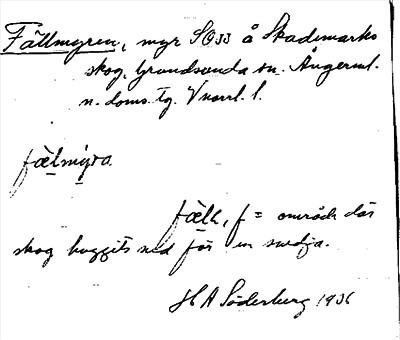 Fällmyren, myr SO33 å Skademarks
skog, Grundsunda sn. Ångerml.
n. doms. tg. Vnorrl. l.
fælmýra.
fælh, f = område där
skog huggits ned för en svedja.
H A Söderberg 1936